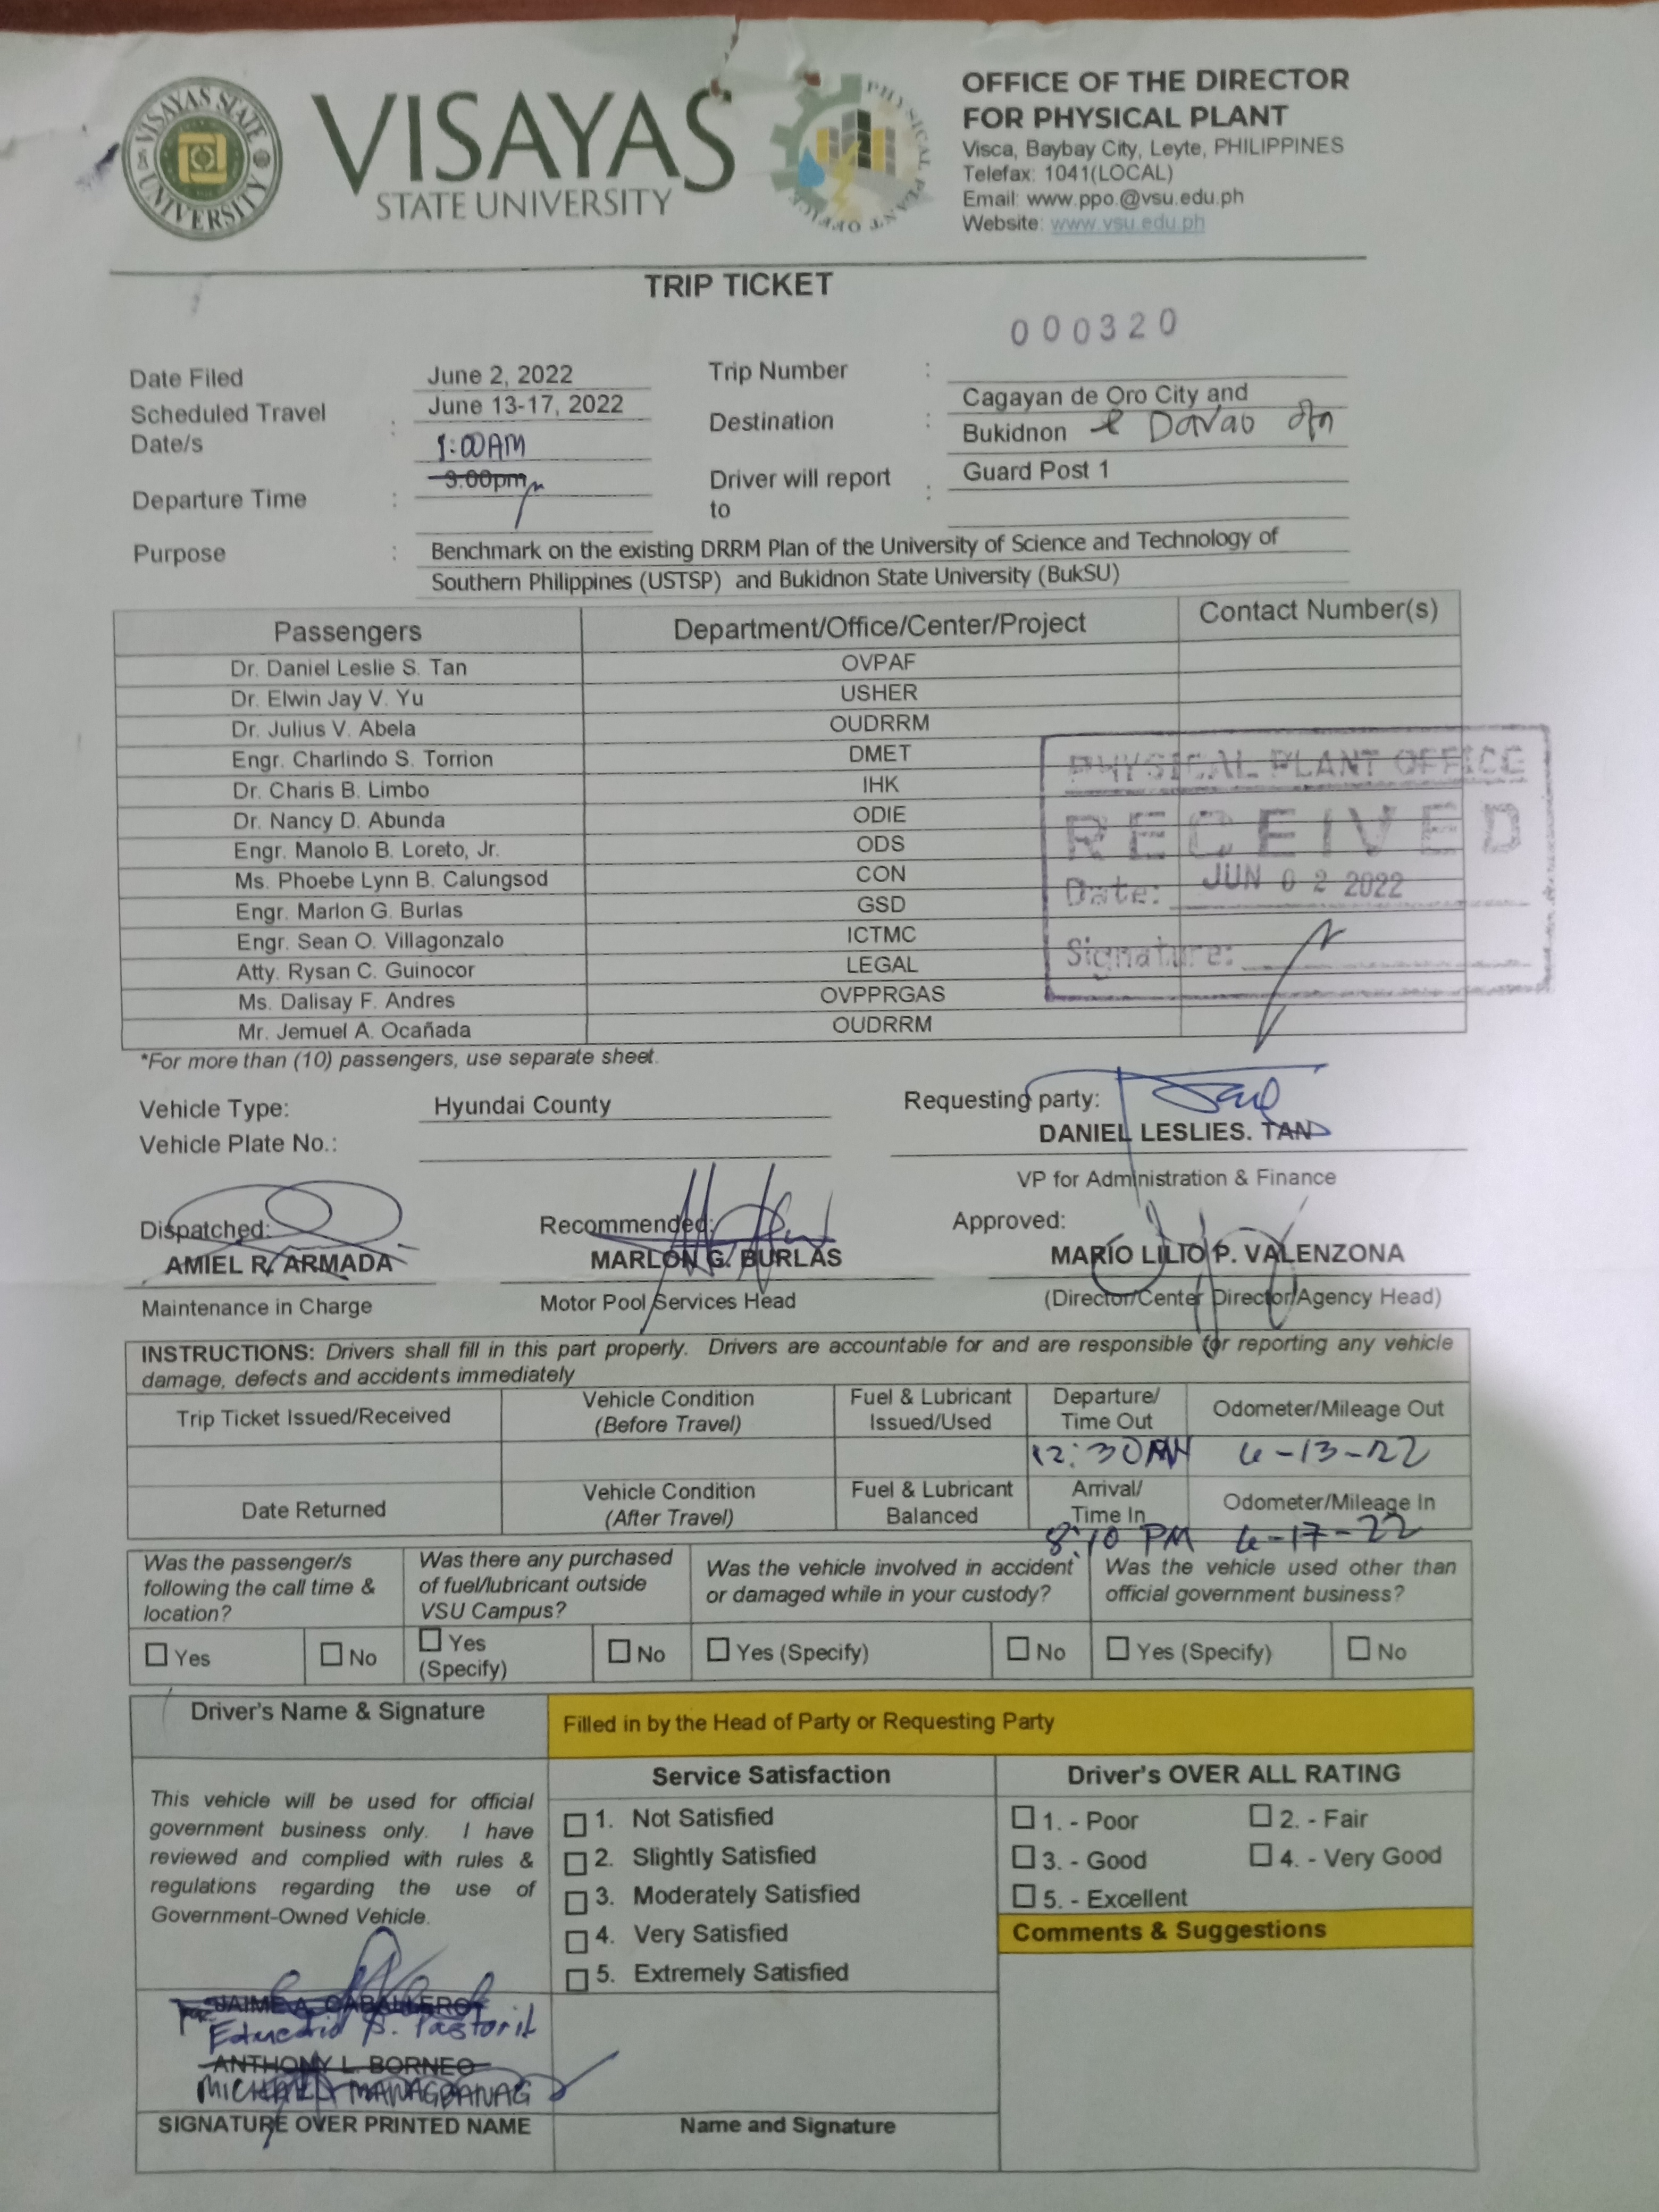 VISAYAS STATE UNIVERSITY
VISAYAS
STATE UNIVERSITY
PHYSICAL PLANT OFFICE
OFFICE OF THE DIRECTOR
FOR PHYSICAL PLANT
Visca, Baybay City, Leyte, PHILIPPINES
Telefax: 1041(LOCAL)
Email: www.ppo.@vsu.edu.ph
Website: www.vsu.edu.ph
TRIP TICKET
000320
Date Filed June 2, 2022 Trip Number :
Scheduled Travel Date/s : June 13-17, 2022
1:00AM
Destination : Cagayan de Oro City and
Bukidnon & Davao
Departure Time : 3:00pm
Driver will report to : Guard Post 1
Purpose : Benchmark on the existing DRRM Plan of the University of Science and Technology of
Southern Philippines (USTSP) and Bukidnon State University (BukSU)
Passengers Department/Office/Center/Project Contact Number(s)
Dr. Daniel Leslie S. Tan OVPAF
Dr. Elwin Jay V. Yu USHER
Dr. Julius V. Abela OUDRRM
Engr. Charlindo S. Torrion DMET
Dr. Charis B. Limbo IHK
Dr. Nancy D. Abunda ODIE
Engr. Manolo B. Loreto, Jr. ODS
Ms. Phoebe Lynn B. Calungsod CON
Engr. Marlon G. Burlas GSD
Engr. Sean O. Villagonzalo ICTMC
Atty. Rysan C. Guinocor LEGAL
Ms. Dalisay F. Andres OVPPRGAS
Mr. Jemuel A. Ocañada OUDRRM
PHYSICAL PLANT OFFICE
RECEIVED
Date: JUN 02 2022
Signature:
*For more than (10) passengers, use separate sheet.
Vehicle Type: Hyundai County
Vehicle Plate No.:
Requesting party:
DANIEL LESLIES. TAN
VP for Administration & Finance
Dispatched:
AMIEL R. ARMADA
Maintenance in Charge
Recommended:
MARLON G. BURLAS
Motor Pool Services Head
Approved:
MARIO LILIO P. VALENZONA
(Director/Center Director/Agency Head)
INSTRUCTIONS: Drivers shall fill in this part properly. Drivers are accountable for and are responsible for reporting any vehicle
damage, defects and accidents immediately
Trip Ticket Issued/Received
Vehicle Condition
(Before Travel)
Fuel & Lubricant
Issued/Used
Departure/
Time Out
Odometer/Mileage Out
12:30AM 6-13-22
Date Returned
Vehicle Condition
(After Travel)
Fuel & Lubricant
Balanced
Arrival/
Time In
Odometer/Mileage In
8:10 PM 6-17-22
Was the passenger/s
following the call time &
location?
Was there any purchased
of fuel/lubricant outside
VSU Campus?
Was the vehicle involved in accident
or damaged while in your custody?
Was the vehicle used other than
official government business?
Yes No
Yes
(Specify)
No
Yes (Specify) No
Yes (Specify) No
Driver's Name & Signature
Filled in by the Head of Party or Requesting Party
This vehicle will be used for official
government business only. I have
reviewed and complied with rules &
regulations regarding the use of
Government-Owned Vehicle.
Service Satisfaction
1. Not Satisfied
2. Slightly Satisfied
3. Moderately Satisfied
4. Very Satisfied
5. Extremely Satisfied
Driver's OVER ALL RATING
1. - Poor 2. - Fair
3. - Good 4. - Very Good
5. - Excellent
Comments & Suggestions
JAIME A. CABALLERO
Pastoril
ANTHONY L. BORNEO
MICHAEL MANAGBANAG
SIGNATURE OVER PRINTED NAME
Name and Signature